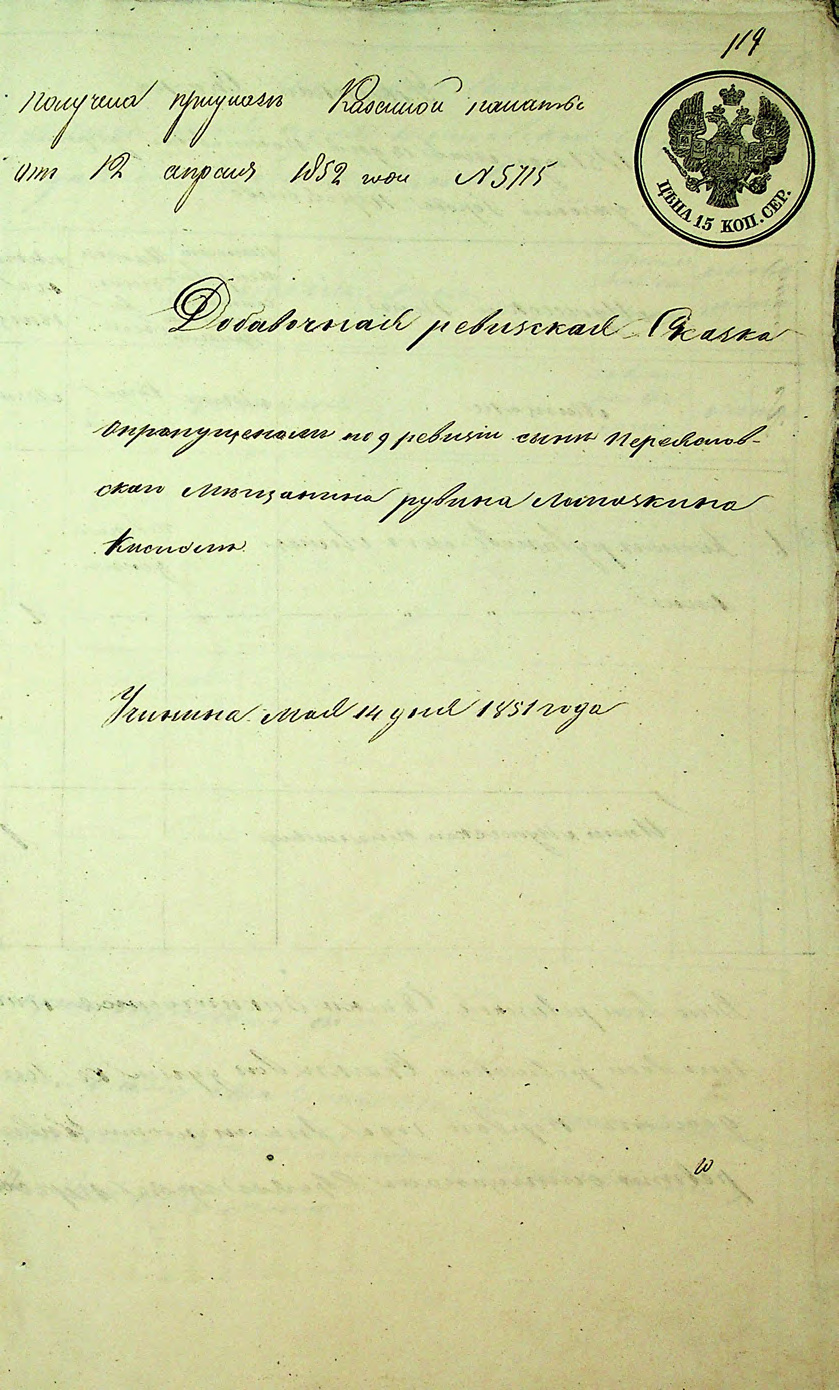 119
Получена приуказе Казенной палаты
отъ 12 апреля 1852 года N 5715
ЦѢНА 15 КОП. СЕР.
Добавочная ревизская Сказка
опропущеномъ под ревизіи сыне Переяслов-
скаго Мещанина рувина
Учинина Мая 14 дня 1851 года